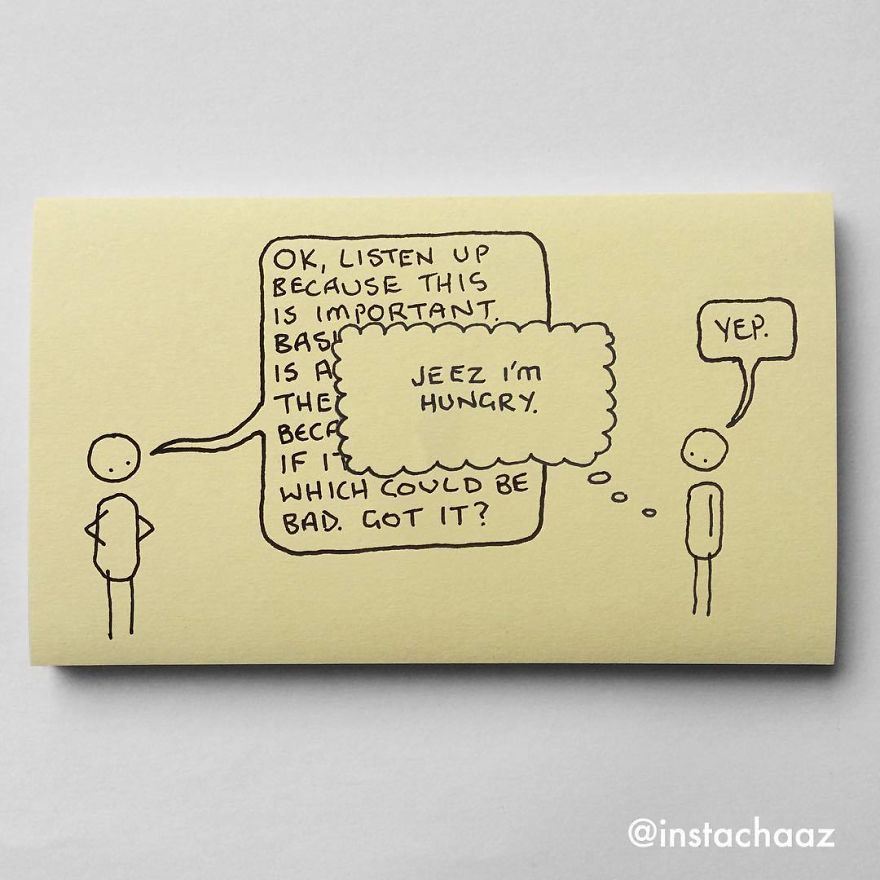 OK, LISTEN UP
BECAUSE THIS
IS IMPORTANT.
IS
THE
IF
WHICH COULD BE
BAD. GOT IT?
JEEZ I'M
HUNGRY.
YEP.
@instachaaz